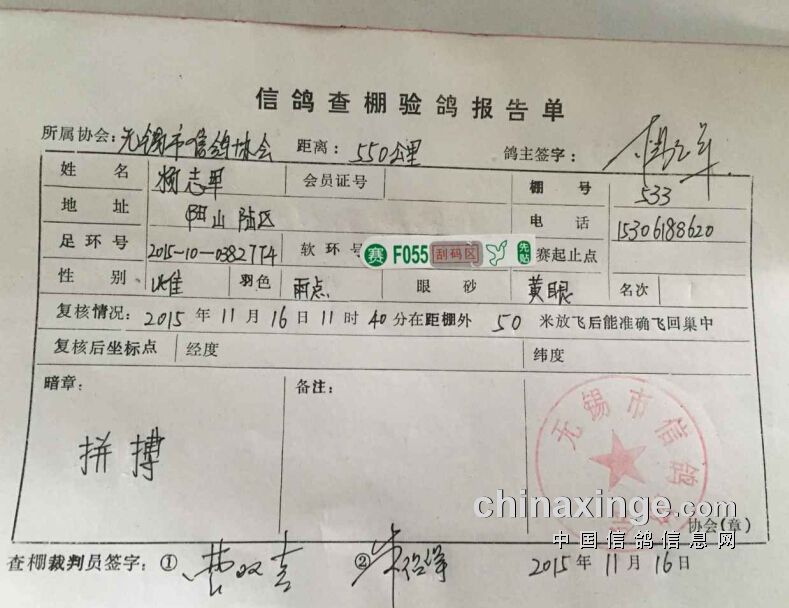 信鸽查棚验鸽报告单
所属协会：无锡市信鸽协会 距离：550公里 鸽主签字：
姓名 杨志军 会员证号 棚号 533
地址 阳山陆区 电话 15306188620
足环号 2015-10-0382774 软环号 赛 F055 刮码区 先贴 赛起止点
性别 雌 羽色 雨点 眼砂 黄眼 名次
复核情况：2015年11月16日11时40分在距棚外50米放飞后能准确飞回巢中
复核后坐标点 经度 纬度
暗章： 备注：
拼搏
无锡市信鸽
chinaxinge.com
协会(章)
中国信鸽信息网
查棚裁判员签字：① ②
2015年11月16日